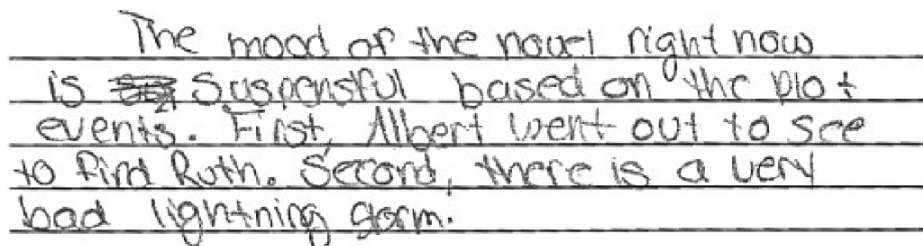 The mood of the novel right now
is suspensful based on the plot
events. First, Albert went out to see
to find Ruth. Second, there is a very
bad lightning storm.